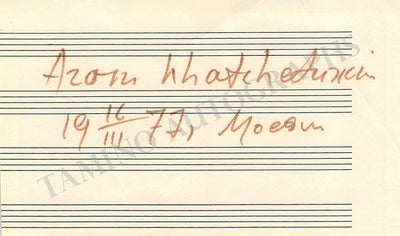 Aram Khatchaturian
19 IV/III 77, Moscou
TAMINO AUTOGRAPHS